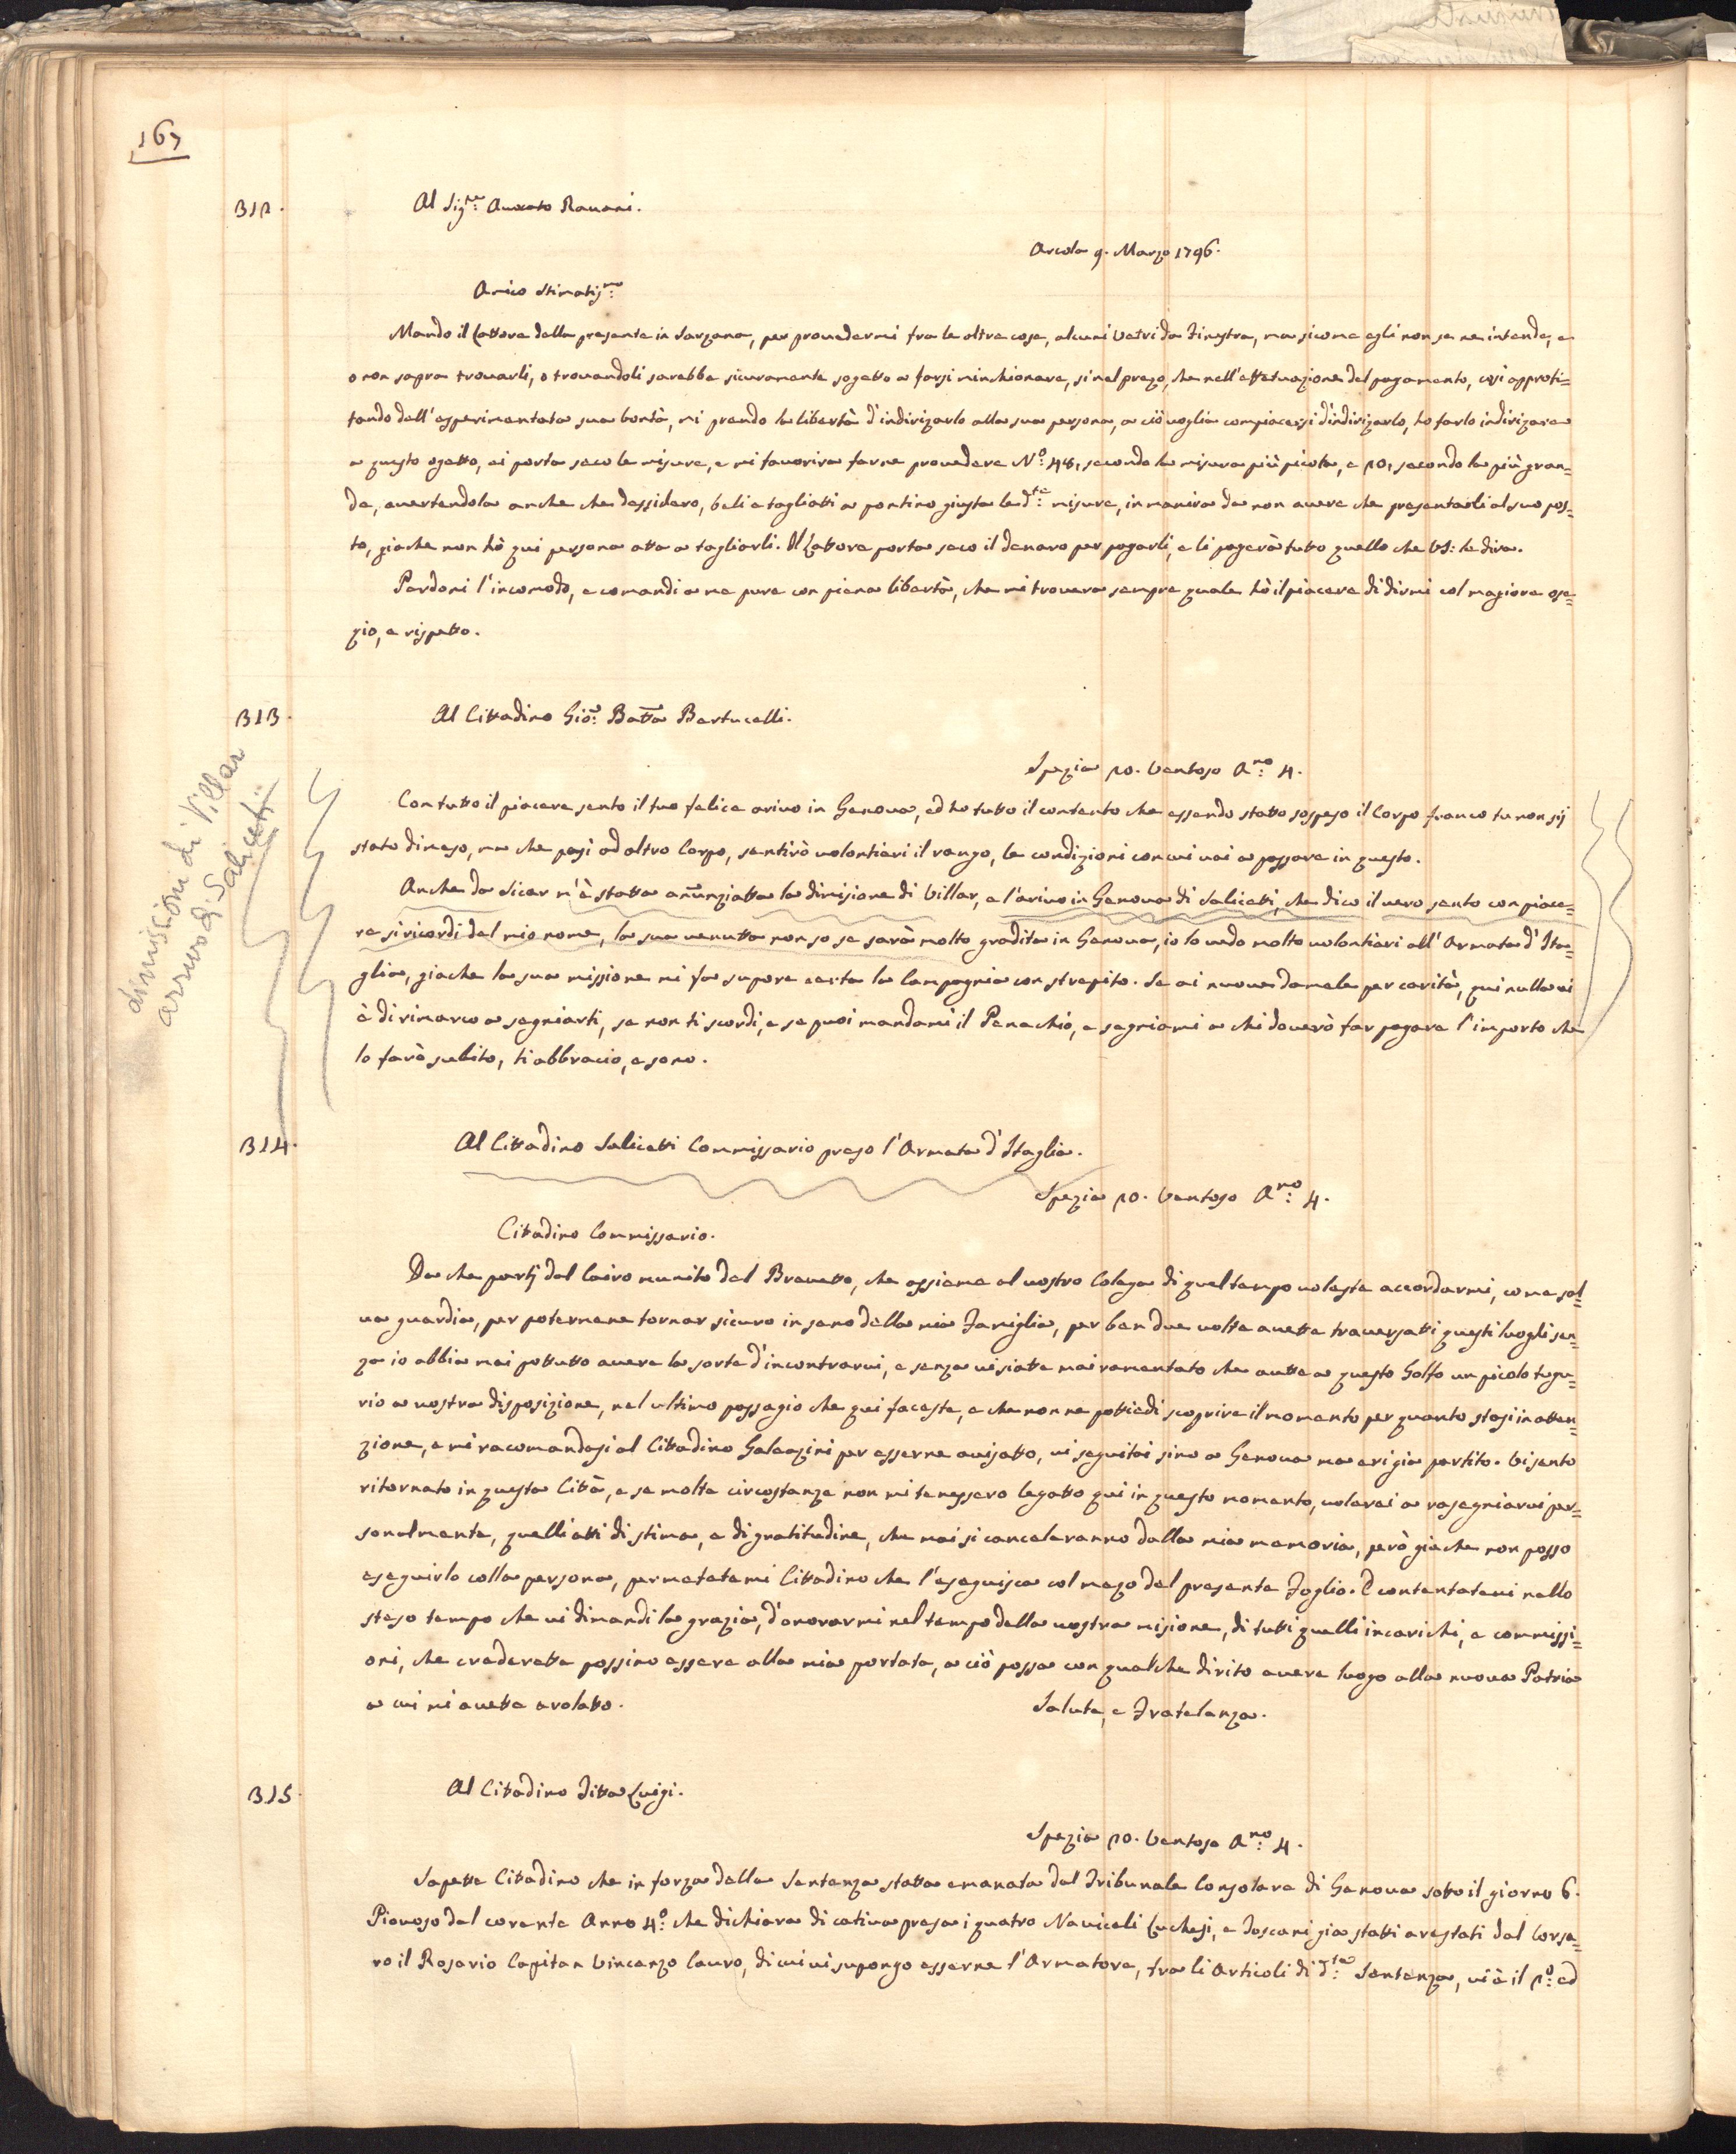 167
312.
Al Sig.re Avocato Ravani.
Arcola 9. Marzo 1796.
Amico Stimatis.mo
Mando il Lattore della presente in Sarzana, per provedermi fra le altre cose, alcuni Vetri da Finestra, ma sicome egli non se ne intende, e
o non sapra trovarli, o trovandoli sarebbe sicuramente sogetto a farsi minchionare, si nel prezo, che nell'effetuazione del pagamento, così aprofi=
tando dell'esperimentata sua bontà, mi prendo la libertà d'indirizarlo alla sua persona, a ciò voglia compiacersi d'indirizarlo, ho farlo indirizare
a questo ogetto, ei porta seco le misure, e mi favorira farne provedere N.o 48, secondo la misura più picola, e 20, secondo la più gran=
de, avertendola anche che dessidero, beli e tagliatti a pontino giusta le d.te misure, in maniera da non avere che presentarli al suo pos=
to, giache non hò qui persona atta a tagliarli. Il Lattore porta seco il denaro per pagarli, e li pagerà tutto quello che VS: le dira.
Perdoni l'incomodo, e comandi a me pure con piena libertà, che mi trovera sempre quale hò il piacere di dirmi col magiore ose=
qio, e rispetto.
313.
Al Cittadino Gio: Batta Bertucelli.
Spezia 20. Ventoso A.no 4.
Con tutto il piacere sento il tuo felice arivo in Genova, ed ho tutto il contento che essendo statto sospeso il Corpo franco tu non sij
stato dimeso, ma che pasi ad altro Corpo, sentirò volontieri il rango, le condizioni con cui vai a passare in questo.
Anche da Sicar m'è statta anunziatta la dimisione di Villar, e l'arivo in Genova di Salicetti, che dico il vero sento con piace=
re si ricordi del mio nome, la sua venutta non so se sarà molto gradita in Genova, io lo vedo molto volontieri all'Armata d'Ita=
glia, giache la sua missione mi fa supore certa la Campagnia con strepito. Se ai nuove damele per carità, qui nulla vi
è di rimarco a segniarti, se non ti scordi, e se puoi mandami il Penachio, e segniami a chi doverò far pagare l'importo che
lo farò subito, ti abbracio, e sono.
dimissioni di Villar
arrivo di Saliceti
314.
Al Cittadino Salicetti Commissario preso l'Armata d'Itaglia.
Spezia 20. Ventoso A.no 4.
Citadino Commissario.
Da che partj dal Cairo munito del Brevetto, che assieme al vostro Colega di quel tempo voleste accordarmi, come sal=
va guardia, per potermene tornar sicuro in seno della mia Famiglia, per ben due volte avette traversatti questi luoghi sen=
za io abbia mai pottutto avere la sorte d'incontrarvi, e senza vi siatte mai ramentato che avette a questo Golfo un picolo tugu=
rio a vostra disposizione, nel ultimo passagio che qui faceste, e che non ne pottiedi scoprire il momento per quanto stasi in atten=
zione, e mi racomandasi al Cittadino Galeazini per esserne avisatto, vi seguitai sino a Genova ma eri gia partito. Vi sento
ritornato in questa Città, e se molte circostanze non mi tenessero legatto qui in questo momento, volarei a rasegniarvi per=
sonalmente, quelli atti di stima, e di gratitudine, che mai si canceleranno dalla mia memoria, però giache non posso
eseguirlo colla persona, permetatemi Cittadino che l'eseguisca col mezo del presente Foglio. E contentatevi nello
steso tempo che vi dimandi la grazia, d'onorarmi nel tempo della vostra misione, di tutti quelli incarichi, e commissi=
oni, che crederette possino essere alla mia portata, a ciò possa con qualche dirito avere luogo alla nuova Patria
a cui mi avette arolatto.
Salute, e Fratelanza.
315.
Al Citadino Ditta Luigi.
Spezia 20. Ventoso A.no 4.
Sapette Citadino che in forza della Sentenza statta emanata dal Tribunale Consolare di Genova sotto il giorno 6.
Piovoso del corente Anno 4.o che dichiara di cativa presa i quatro Naviceli Luchesi, e Toscani gia statti arestati dal Corsa=
ro il Rosario Capitan Vincenzo Cauro, di cui vi supongo esserne l'Armatore, fra li Articoli di d.ta Sentenza, vi è il 2.o ed